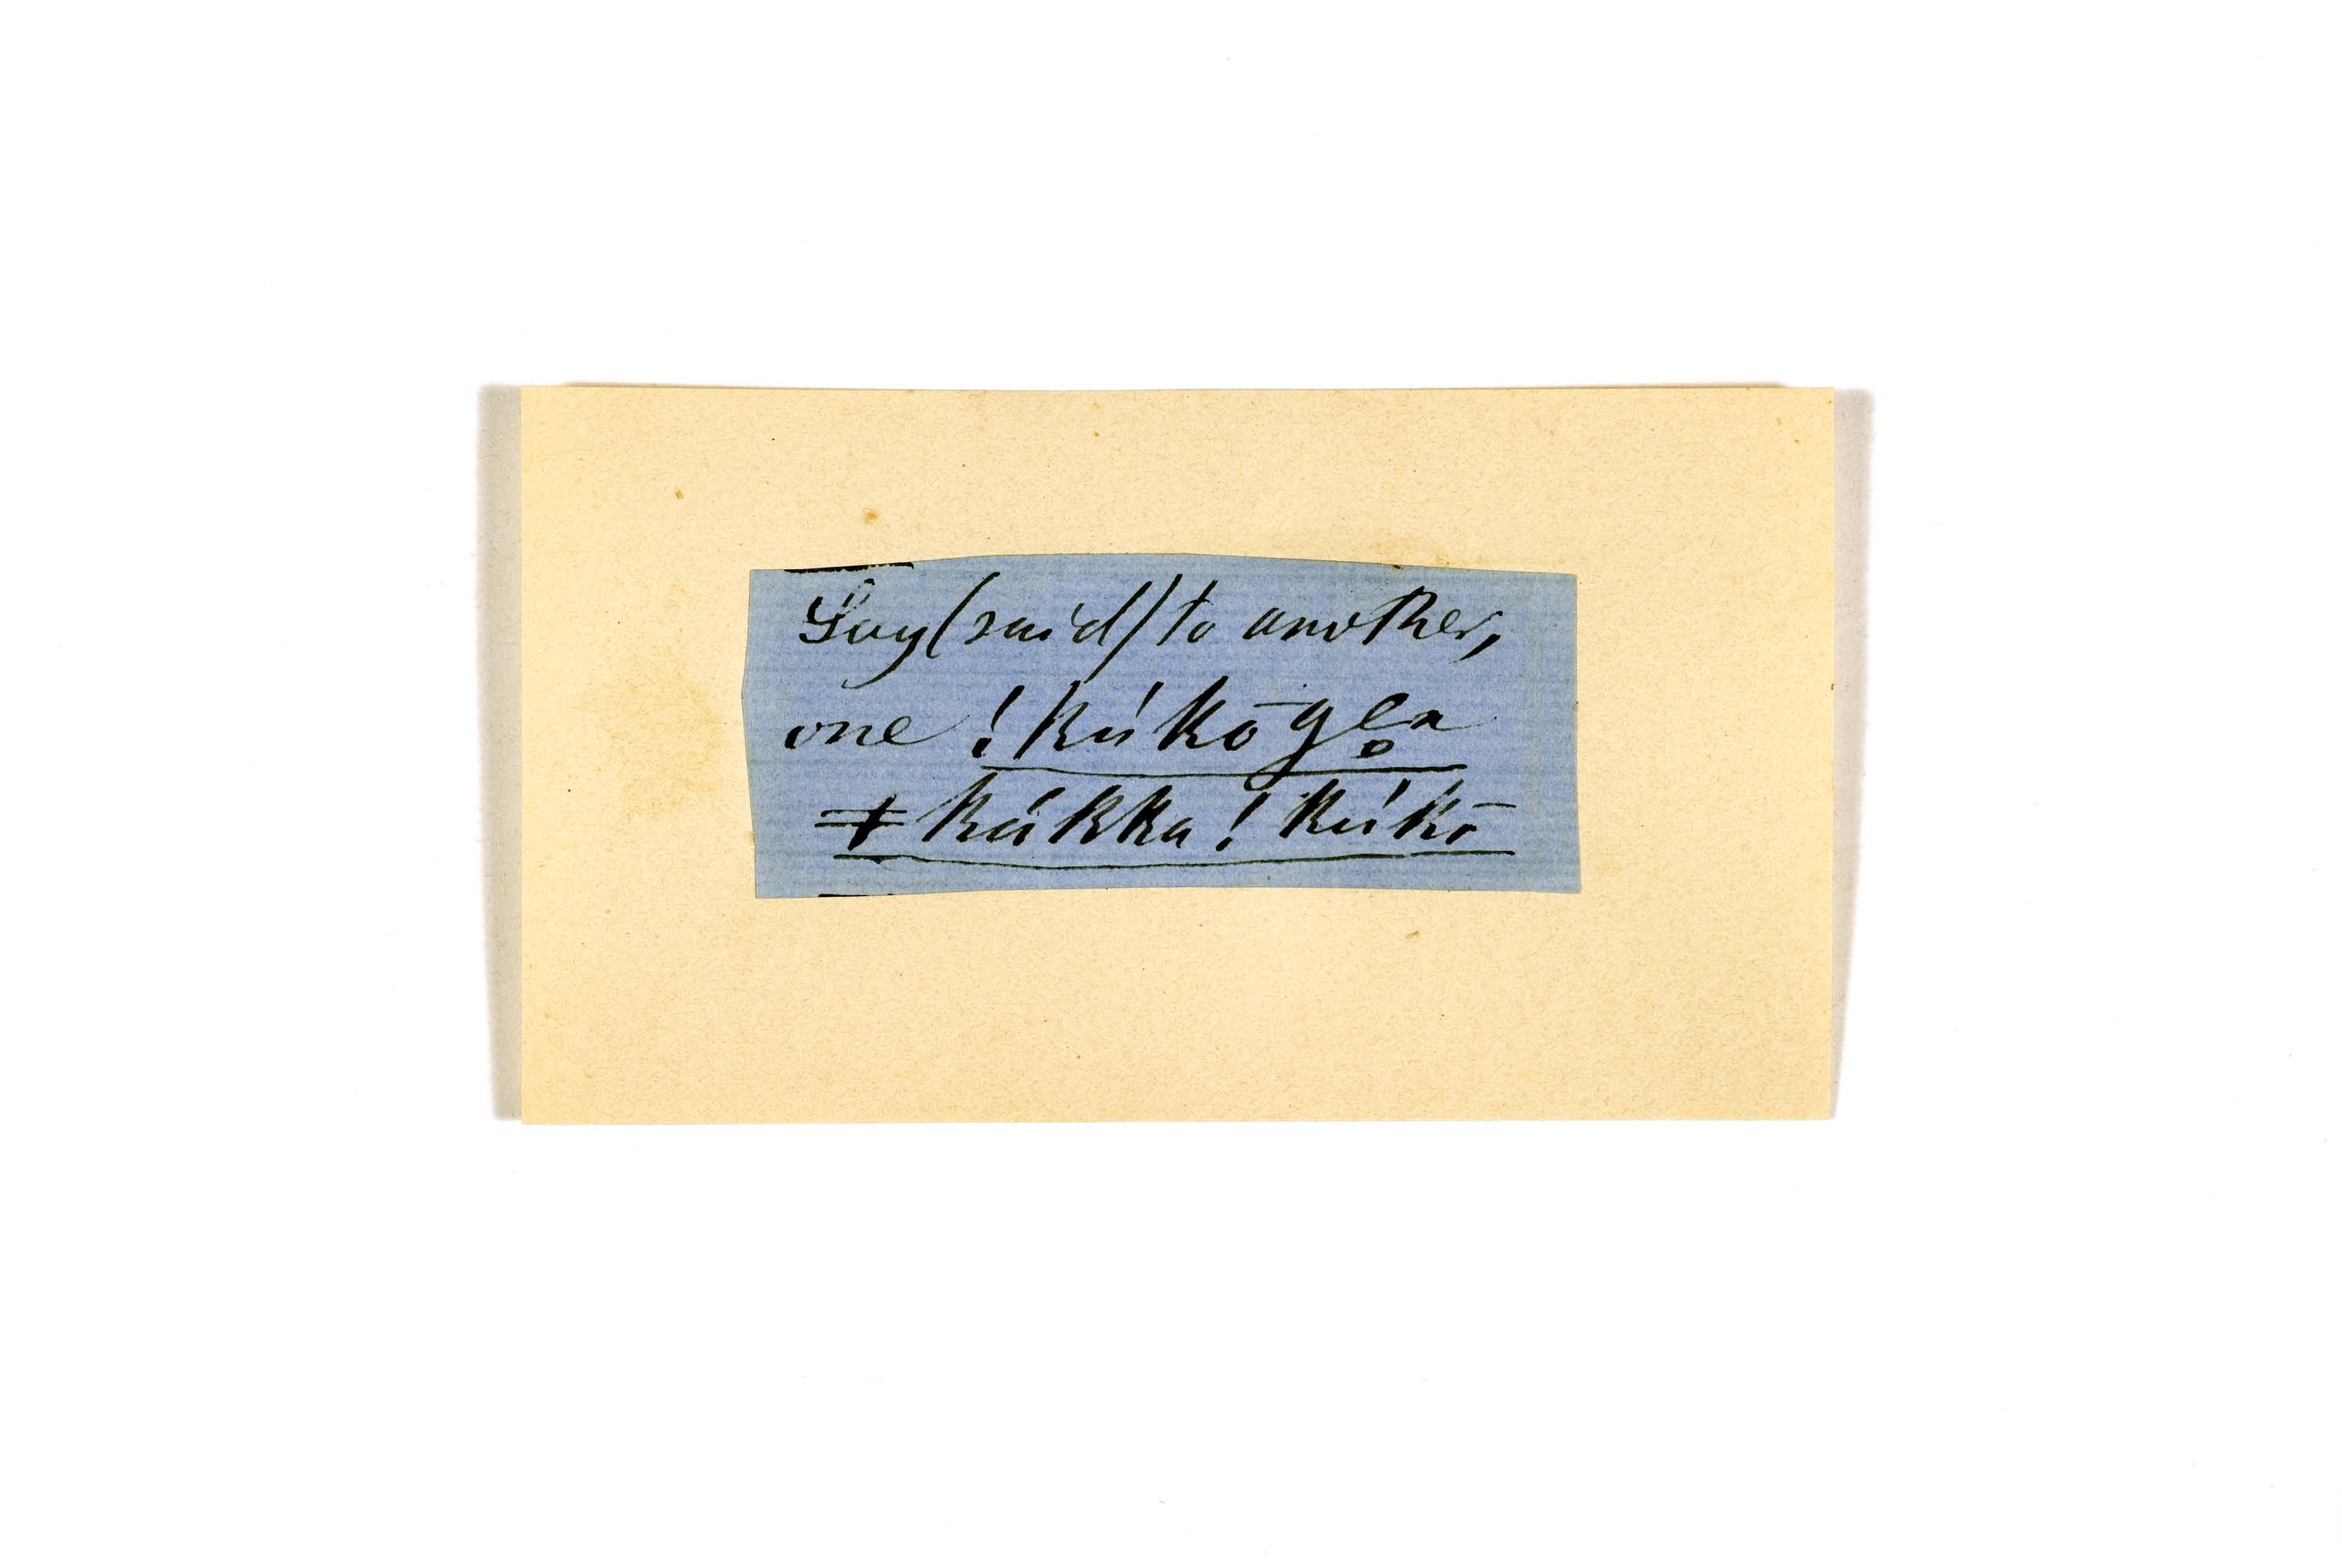 Say (said) to another,
one !kú kō ge̥n
ǂkákka !kú kō